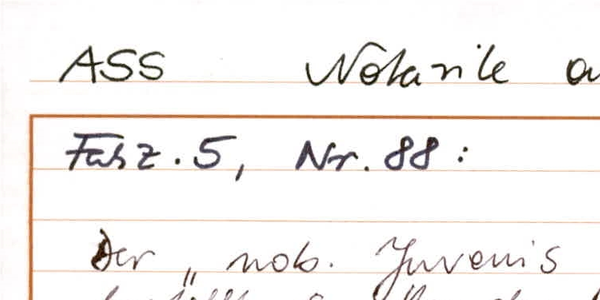 ASS Notarile
Fasz. 5, Nr. 88:
Der „ nob. Juvenis